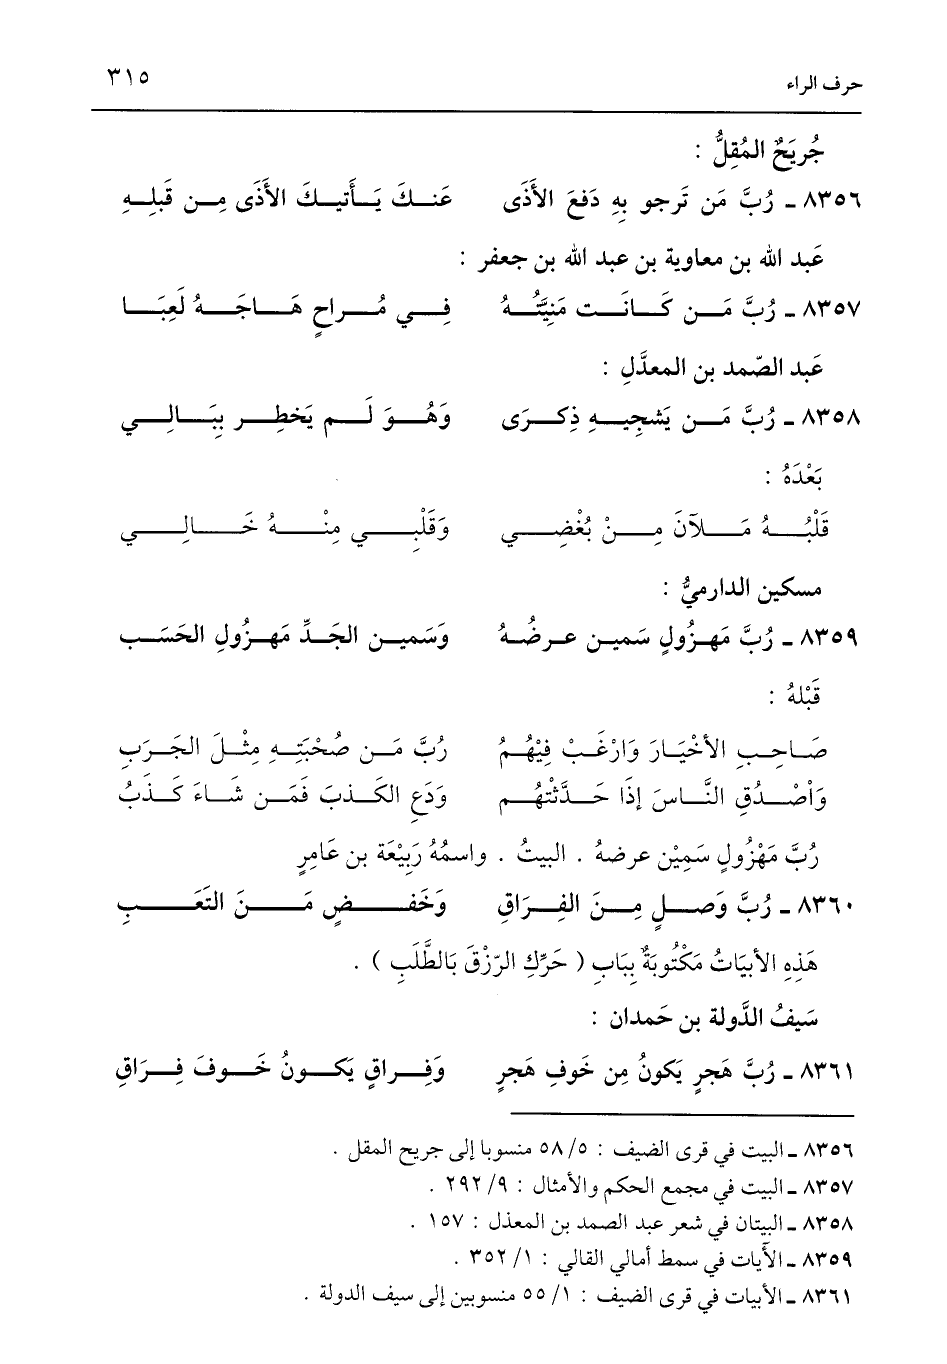 حرف الراء ٣١٥
جُريَحٌ المُقِلُّ :
٨٣٥٦ ـ رُبَّ مَن تَرجو بِهِ دَفعَ الأَذَى عَنكَ يَأتيكَ الأَذَى مِن قَبلِهِ
عَبد الله بن معاوية بن عبد الله بن جعفر :
٨٣٥٧ ـ رُبَّ مَن كَانَت مَنِيَّتُهُ فِي مُراحٍ هَاجَهُ لَعِبَا
عَبد الصّمد بن المعذَّلِ :
٨٣٥٨ ـ رُبَّ مَن يَشجِيهِ ذِكرَى وَهُوَ لَم يَخطِر بِبَالِي
بَعْدَهُ :
قَلْبُهُ مَلآنَ مِنْ بُغْضِي وَقَلْبِي مِنْهُ خَالِي
مسكين الدارميُّ :
٨٣٥٩ ـ رُبَّ مَهزُولٍ سَمِين عرضُهُ وَسَمين الجَدِّ مَهزُولِ الحَسَب
قَبْلهُ :
صَاحِبِ الأخْيَارَ وَارْغَبْ فِيْهُمُ رُبَّ مَن صُحْبَتِهِ مِثْلَ الجَرَبِ
وَأصْدُقِ النَّاسَ إذَا حَدَّثْتُهُم وَدَعِ الكَذبَ فَمَن شَاءَ كَذَبُ
رُبَّ مَهْزُولٍ سَمِيْن عرضهُ . البيتُ . واسمُهُ رَبِيْعَة بن عَامِرٍ
٨٣٦٠ ـ رُبَّ وَصلٍ مِنَ الفِرَاقِ وَخَفضٍ مَنَ التَعَبِ
هَذِهِ الأبيَاتُ مَكْتُوبَةٌ بِبَابِ ( حَرِّكِ الرّزْقَ بَالطَّلَبِ ) .
سَيفُ الدَّولة بن حَمدان :
٨٣٦١ ـ رُبَّ هَجرٍ يَكونُ مِن خَوفِ هَجرٍ وَفِراقٍ يَكونُ خَوفَ فِرَاقِ
٨٣٥٦ ـ البيت في قرى الضيف : ٥/ ٥٨ منسوبا إلى جريح المقل .
٨٣٥٧ ـ البيت في مجمع الحكم والأمثال : ٩/ ٢٩٢ .
٨٣٥٨ ـ البيتان في شعر عبد الصمد بن المعذل : ١٥٧ .
٨٣٥٩ ـ الأيات في سمط أمالي القالي : ١/ ٣٥٢ .
٨٣٦١ ـ الأبيات في قرى الضيف : ١/ ٥٥ منسوبين إلى سيف الدولة .